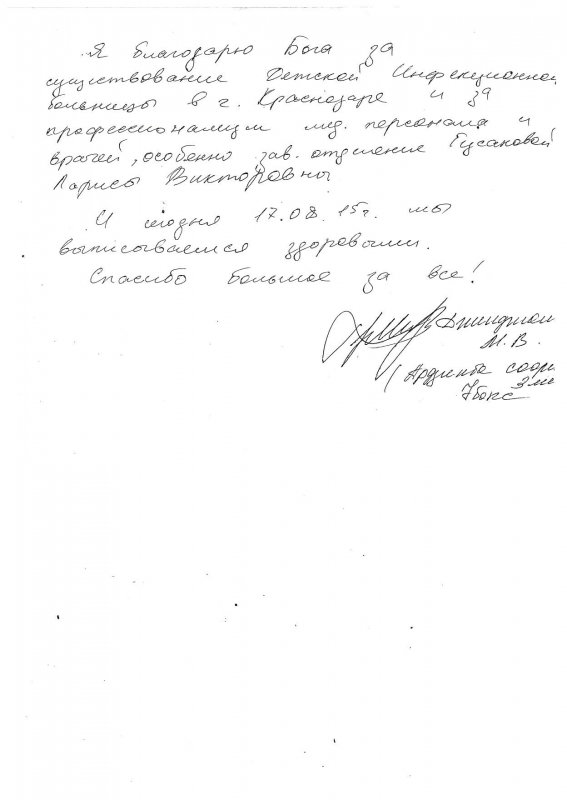 Я благодарю Бога за
существование Детской Инфекционной
больницы в г. Краснодаре и за
профессионализм мед. персонала и
врачей, особенно зав. отделение Гусаковой
Ларисы Викторовны
И сегодня 17.08.15г. мы
выписываемся здоровыми.
Спасибо большое за все!
М. В.
7бокс